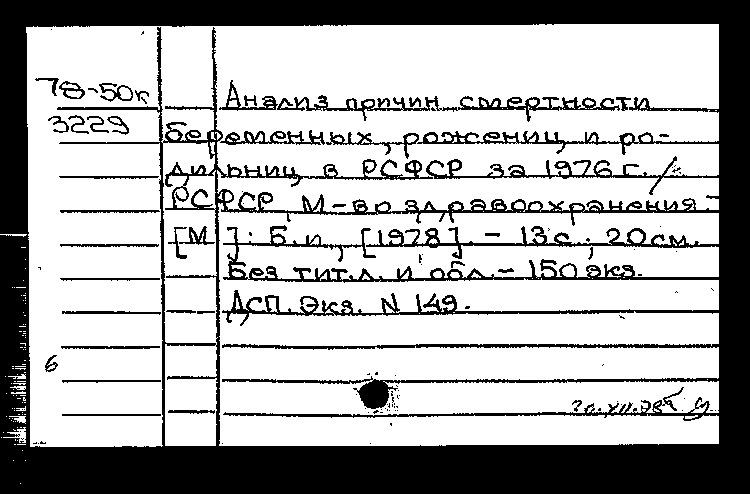 78-50к
3229
Анализ причин смертности
беременных, рожениц и ро-
дильниц в РСФСР за 1976 г. /
РСФСР, М-во здравоохранения -
[М]: Б.и., [1978]. - 13 с.; 20 см.
Без тит.л. и обл. - 150 экз.
ДСП. Экз. N 149.
6